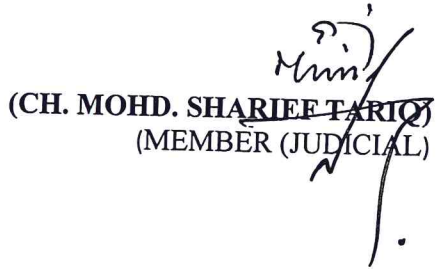 (CH. MOHD. SHARIEF TARIQ)
(MEMBER (JUDICIAL)